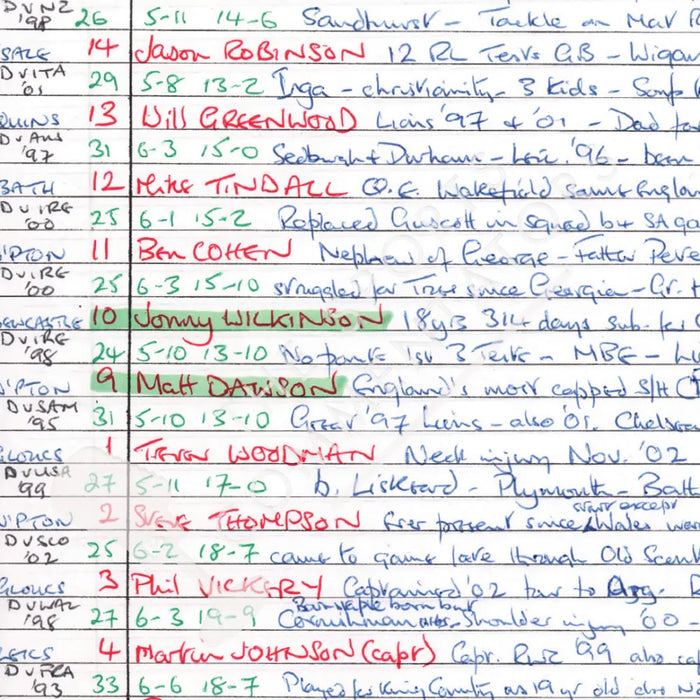 DVNZ '98 26 5-11 14-6 Sandhurst - Tackle on Mat
SALE 14 Jason ROBINSON 12 RL Tests GB - Wigan
DVITA '01 29 5-8 13-2 Inga - christianity - 3 kids - Soup
QUINS 13 Will GREENWOOD Lions '97 & '01 - Dad
DVAUS '97 31 6-3 15-0 Sedburgh & Durham - Leic. '96 - been
BATH 12 Mike TINDALL Q.E. Wakefield same England
DVIRE '00 25 6-1 15-2 Replaced Guscott in squad but SA game
N'PTON 11 Ben COHEN Nephew of George - Father Peter
DVIRE '00 25 6-3 15-10 struggled for Trys since Georgia - Gr.
NEWCASTLE 10 Jonny WILKINSON 18yrs 314 days sub. for
DVIRE '98 24 5-10 13-10 No points 1st 3 Tests - MBE -
N'PTON 9 Matt DAWSON England's most capped S/H
DVSAM '95 31 5-10 13-10 Great '97 Lions - also '01. Chelsea
GLOUCS 1 Trevor WOODMAN Neck injury Nov. '02
DVUSA '99 27 5-11 17-0 b. Liskeard - Plymouth - Bath
N'PTON 2 Steve THOMPSON Ever present since start except Wales
DVSCO '02 25 6-2 18-7 came to game late through Old Scouts
GLOUCS 3 Phil VICKERY Captained '02 tour to Arg.
DVWAL '98 27 6-3 19-9 Barnstaple born but Cornishman - Shoulder injury '00 -
LEICS 4 Martin JOHNSON (capt) Capt. RWC '99 also
DVFRA '93 33 6-6 18-7 Played for King Country as 19 yr old also